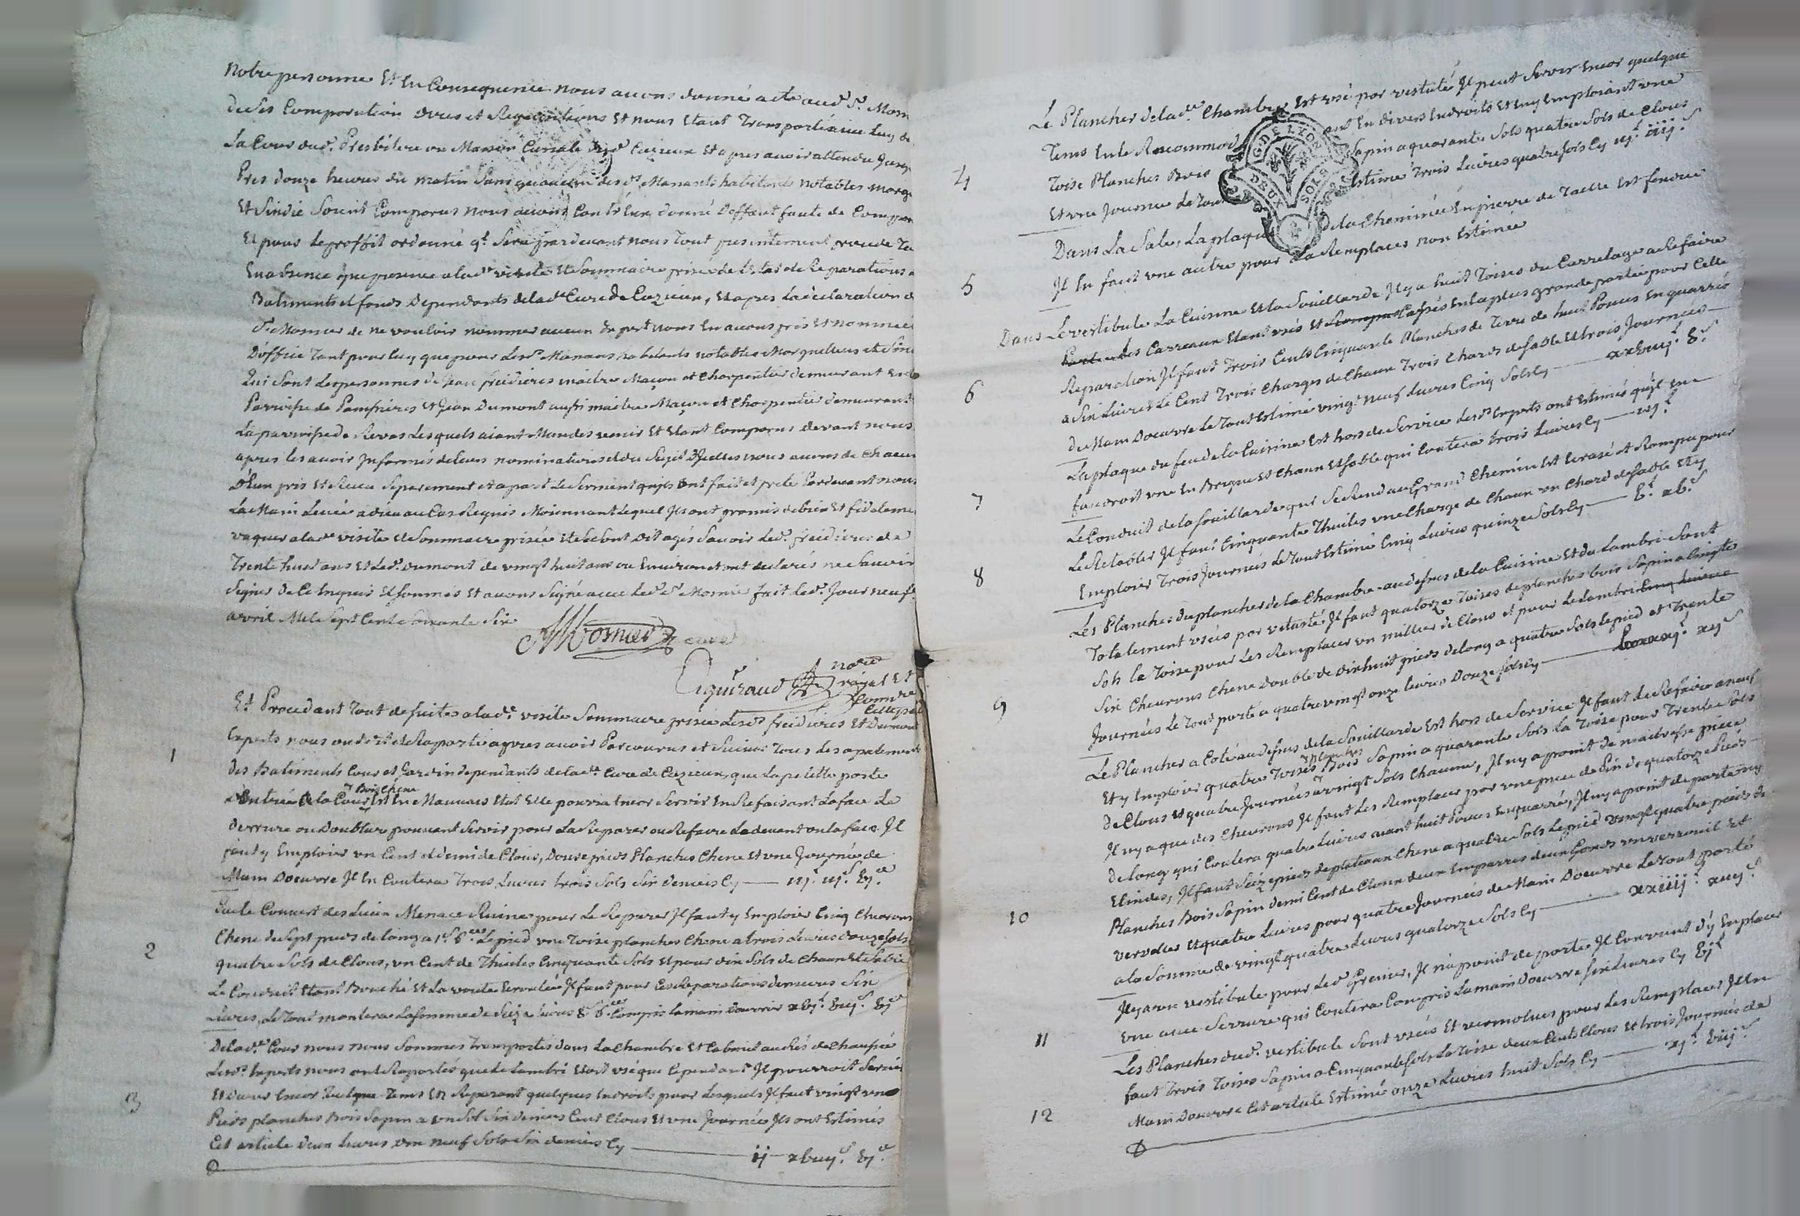 Notre personne Et En Consequence nous avons donné acte aud. Sr. Mon
de ses Comparution dires et Requisitions Et nous Etant Transporté avec luy de
La Cour dud. Presbitere ou Maison Curiale dud. Cuzieux Et apres avoir attendu Jusq
Pres douze heures du matin sans qu'aucun desd. Manants habitants notables marge
Et Sindic Soient Comparus nous avons Contr'Eux donné Deffaut faute de Compar
Et pour Le proffit ordonné qt. Sera par devant nous Tout presentement procedé Ta
En absence que presence a lad. visite Et Sommaire prisée de l'Etat de Reparations
Batiments et fonds Dependants de lad. Cure de Cuzieux, Et apres La declaration d
Sr. Mosnier de ne vouloir nommer aucun Expert nous En avons pris Et nommé
D'office Tant pour luy que pour lesd. Manans habitants notables Marguilliers et Sin
Qui sont Les personnes de Jean freidieres maitre Maçon et Charpentier demeurant en
Parroisse de Et Jean Dumont aussi maitre Maçon et Charpentier demeurant
La parroisse de Rivas Lesquels aiant Mandés venir Et Etant Comparus devant nous
apres les avoir Informés de leurs nominations et du Sujet D'Icelles nous avons de Chacun
D'Eux pris et Reçu Separement et a part Le Serment qu'ils ont fait et preté Pardevant nous
La Main Levée a dieu au Cas Requis Moiennant Lequel Ils ont promis de bien Et fidelleme
vaquer a lad. visite et Sommaire prisée Et se sont Dit agés Savoir Led. freidieres de
Trente huit ans Et Led. Dumont de vingt huit ans ou Environ et ont declarés ne Savoir
Signer de Ce Enquis Et Sommés Et avons Signé avec led. Sr. Mosnier fait led. Jour neuf
avril Mil Sept Cent Soixante Six
Mosnier curé
Ciguiraud nore royal Et Commre
Et Procedant Tout de suitte a lad. visite Sommaire prisée Lesd. freidieres Et Dumont
Experts nous ont dit et Raporté apres avoir Parcourus et Suivis Tous Les apartements
1
des Batiments Cour et Jardin dependants de lad. Cure de Cuzieux, que La petitte porte
d'Entrée de la Cour Bois Chene Est En Mauvais Etat Elle pourra Encor Servir En Refaisant La face La
Serrure ou Doublure pouvant Servir pour La Reparer ou Refaire Le devant ou la face Il
faut y Employer un Cent et demi de Clous, Douze pieds Planches Chene Et une Journée de
Main D'oeuvre Il En Coutera Trois Livres trois Sols Six deniers Cy — iij. iij. vj.
Sur le Couvert des Menace Ruine pour Le Reparer Il faut y Employer Cinq Chevrons
2
Chene de Sept pieds de long a 1s. 6d. Le pied une Toise planches Chene a trois Livres douze Sols
quatre Sols de Clous, un Cent de Thuiles Cinquante Sols Et pour dix Sols de Chaux Et Sable
Le Conduit Etant Bouché Et La voute Ecroulée Il faut pour Ces Reparations Six
Livres, Le Tout montera La Somme de Seize Livres 8s. 6d. Compris la main d'oeuvre xvj. viij. vj.
De lad. Cour nous nous Sommes Transportés dans La Chambre Et Cabinet au Rés de Chaussée
Lesd. Experts nous ont Raportés que le Lambri Etoit usé que Cependant Il pourroit Servir
3
Et durer Encor Quelque Tems En Reparant quelques Endroits pour Lesquels Il faut vingt un
Pieds planches Bois Sapin a un Sol Six deniers Cent Clous Et une Journée Ils ont Estimés
Cet article Deux Livres dix neuf Sols Six deniers Cy — ij. xviiij. vj.
Le Plancher de lad. Chambre Est usé par vestuté Il peut Servir Encor quelque
Tems En le Racommod ant En divers Endroits Et En y Emploiant une
4
Toise Planches Bois Sapin a quarante Sols quatre Sols de Clous
Et une Journée de Tout Estimé Trois Livres quatre Sols Cy iij. iiij.
G. DE LYON
DEUX SOLS
Dans La Sale, La plaque de la Cheminée En pierre de Taille Est fendue
5
Il En faut une autre pour La Remplacer non Estimée
Dans Le vestibule La Cuisine Et La Souillarde Il y a huit Toises de Carrelage a Refaire
Les Carreaux Etant usés Et Cassés En la plus grande partie pour Cette
6
Reparation Il faut Trois Cents Cinquante Planches de Terre de huit Pouces En quarré
a Six Livres Le Cent Trois Charges de Chaux Trois Chars de Sable Et trois Journées
de Main D'oeuvre Le Tout Estimé vingt neuf Livres Cinq Sols Cy — xxviiij. v.
La plaque du feu de la Cuisine Est hors de Service Lesd. Experts ont Estimés qu'il En
7
faudroit une En Brique Et Chaux Et Sable qui Coutera Trois Livres Cy — iij.
Le Conduit de la Souillarde qui Se Rend au Grand Chemin Est Ecrasé Et Rompu pour
8
Le Retablir Il faut Cinquante Thuiles une Charge de Chaux un Chard de Sable Et y
Emploier Trois Journées Le Tout Estimé Cinq Livres quinze Sols Cy — v. xv.
Les Planches du plancher de la Chambre au dessus de la Cuisine Et du Lambri Sont
Totalement usés par vetusté Il faut quatorze Toises de planches bois Sapin a Cinquante
Sols la Toise pour Les Remplacer un millier de Clous Et pour Le Lambri
9
Six Chevrons Chene Double de Dixhuit pieds de long a quatre Sols le pied Et Trente
Journées Le Tout porté a quatre vingt onze Livres Douze Sols Cy — xij.
Le Plancher a Coté au dessus de la Souillarde Est hors de Service Il faut Le Refaire a neuf
Et y Emploier quatre Toises Planches Bois Sapin a quarante Sols La Toise pour Trente Sols
de Clous Et quatre Journées a vingt Sols Chacune, Il n'y a point de maitresse piece
Il n'y a que des Chevrons Il faut Les Remplacer par une piece de Pin de quatorze Pieds
de long qui Coutera quatre Livres aiant huit Pouces En quarré, Il n'y a point de porte ny
10
Et Indes, Il faut Seize pieds de plateau Chene a quatre Sols Le pied vingt quatre pieds de
Planches Bois Sapin demi Cent de Cloux deux Emparres deux Gonds un verrouil Et
vervelles Et quatre Livres pour quatre Journées de Main D'oeuvre Le Tout porté
a la Somme de vingt quatre Livres quatorze Sols Cy — xxiiij. xiiij.
Il y a un vestibule pour led. Grenier, Il n'a point de porte Il Convient d'y En placer
11
une avec Serrure qui Coutera Compris La main D'oeuvre Six Livres Cy vj.
Les Planches dud. vestibule Sont usées Et vermolues pour Les Remplacer Il En
faut Trois Toises Sapin a Cinquante Sols La Toise deux Cents Clous Et trois Journées de
12
Main D'oeuvre Cet article Estimé onze Livres huit Sols Cy — xj. viij.